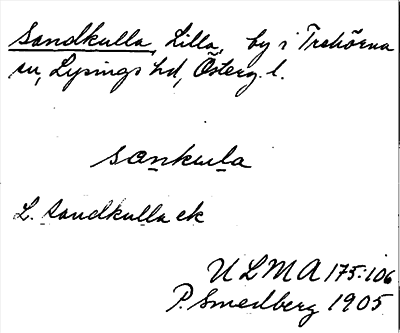 Sandkulla, Lilla, by i Trehörna
sn, Lysings hd, Österg. l.
sankula
L. Sandkulla ek
ULMA 175:106
P. Smedberg 1905